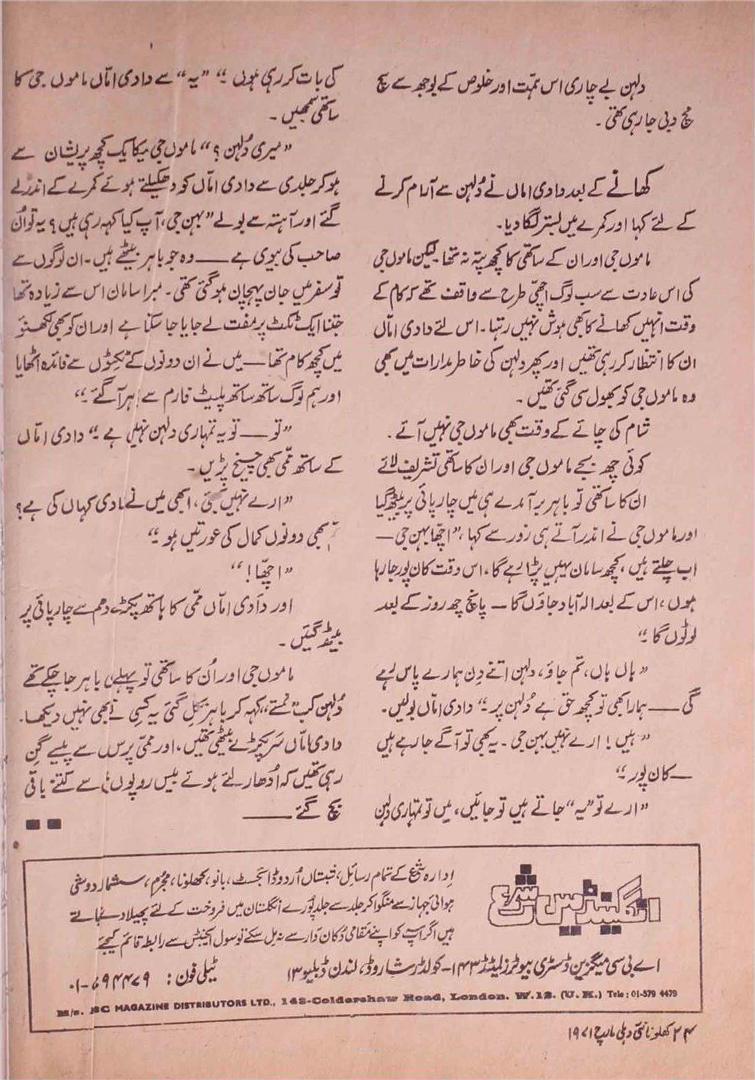 دلہن بے چاری اس محبت اور خلوص کے بوجھ سے سچ
مچ دبی جا رہی تھی۔
کھانے کے بعد دادی اماں نے دُلہن سے آرام کرنے
کے لئے کہا اور کمرے میں بستر لگا دیا۔
ماموں جی اور ان کے ساتھی کا کچھ پتہ نہ تھا لیکن ماموں جی
کی اس عادت سے سب لوگ اچھی طرح سے واقف تھے کہ کام کے
وقت انہیں کھانے کا بھی ہوش نہیں رہتا۔ اس لئے دادی اماں
ان کا انتظار کر رہی تھیں اور پھر دلہن کی خاطر مدارات میں بھی
وہ ماموں جی کو بھول سی گئی تھیں۔
شام کی چائے کے وقت بھی ماموں جی نہیں آئے۔
کوئی چھ بجے ماموں جی اور ان کا ساتھی تشریف لائے
ان کا ساتھی تو باہر برآمدے ہی میں چارپائی پر بیٹھ گیا
اور ماموں جی نے اندر آتے ہی زور سے کہا، "اچھا بہن جی —
اب چلتے ہیں، کچھ سامان یہیں پڑا رہے گا، اس وقت کان پور جا رہا
ہوں، اس کے بعد الہ آباد جاؤں گا — پانچ چھ روز کے بعد
لوٹوں گا۔"
"ہاں ہاں، تم جاؤ، دلہن اتنے دن ہمارے پاس رہے
گی — ہمارا بھی تو کچھ حق ہے دُلہن پر۔" دادی اماں بولیں۔
"ہیں! ارے نہیں بہن جی۔ یہ بھی تو آگے جا رہے ہیں
— کان پور۔"
"ارے تو "یہ" جاتے ہیں تو جائیں، میں تو تمہاری دلہن
کی بات کر رہی ہوں۔" "یہ" سے دادی اماں ماموں جی کا
ساتھی سمجھیں۔
"میری دُلہن؟" ماموں جی یکایک کچھ پریشان سے
ہو کر جلدی سے دادی اماں کو دھکیلتے ہوئے کمرے کے اندر لے
گئے اور آہستہ سے بولے "بہن جی، آپ کیا کہہ رہی ہیں؟ یہ تو اُن
صاحب کی بیوی ہے — وہ جو باہر بیٹھے ہیں۔ ان لوگوں سے
تو سفر میں جان پہچان ہو گئی تھی۔ میرا سامان اس سے زیادہ تھا
جتنا ایک ٹکٹ پر مفت لے جایا جا سکتا ہے اور ان کو بھی لکھنؤ
میں کچھ کام تھا — میں نے ان دونوں کے ٹکٹوں سے فائدہ اٹھایا
اور ہم لوگ ساتھ ساتھ پلیٹ فارم سے باہر آ گئے۔"
"تو — تو یہ تمہاری دلہن نہیں ہے۔" دادی اماں
کے ساتھ ممی بھی چیخ پڑیں۔
"ارے نہیں بھئی، ابھی میں نے شادی کہاں کی ہے؟
بھی دونوں کمال کی عورتیں ہو۔"
"اچھا!"
اور دادی اماں ممی کا ہاتھ پکڑے دھم سے چارپائی پر
بیٹھ گئیں۔
ماموں جی اور اُن کا ساتھی تو پہلے ہی باہر جا چکے تھے
دُلہن کب "نمستے" کہہ کر باہر نکل گئی یہ کسی نے بھی نہیں دیکھا۔
دادی اماں سر پکڑے بیٹھی تھیں، اور ممی پرس سے پیسے گن
رہی تھیں کہ اُدھار لئے ہوئے بیس روپوں میں سے کتنے باقی
بچ گئے —
انگلینڈ میں شمع
اِدارہ شمع کے تمام رسائل، شبستاں اُردو ڈائجسٹ، بانو، کھلونا، مجرم، سشما، دوشی
ہوائی جہاز سے منگوا کر جلد سے جلد پورے انگلستان میں فروخت کے لئے پھیلا دئے جاتے
ہیں اگر آپ کو اپنے مقامی دُکان دار سے نہ مل سکے تو سول ایجنٹس سے رابطہ قائم کیجئے
اے بی سی میگزین ڈسٹری بیوٹرز لمیٹڈ ۱۴۳- کولڈرشا روڈ، لندن ڈبلیو ۱۳ ٹیلی فون: ۵۷۹۴۴۷۹-۰۱
M/s. JSC MAGAZINE DISTRIBUTORS LTD., 143-Coldershaw Road, London. W.13. (U.K.) Tele: 01-579 4479
۲۴ کھلونا نئی دہلی مارچ ۱۹۷۱